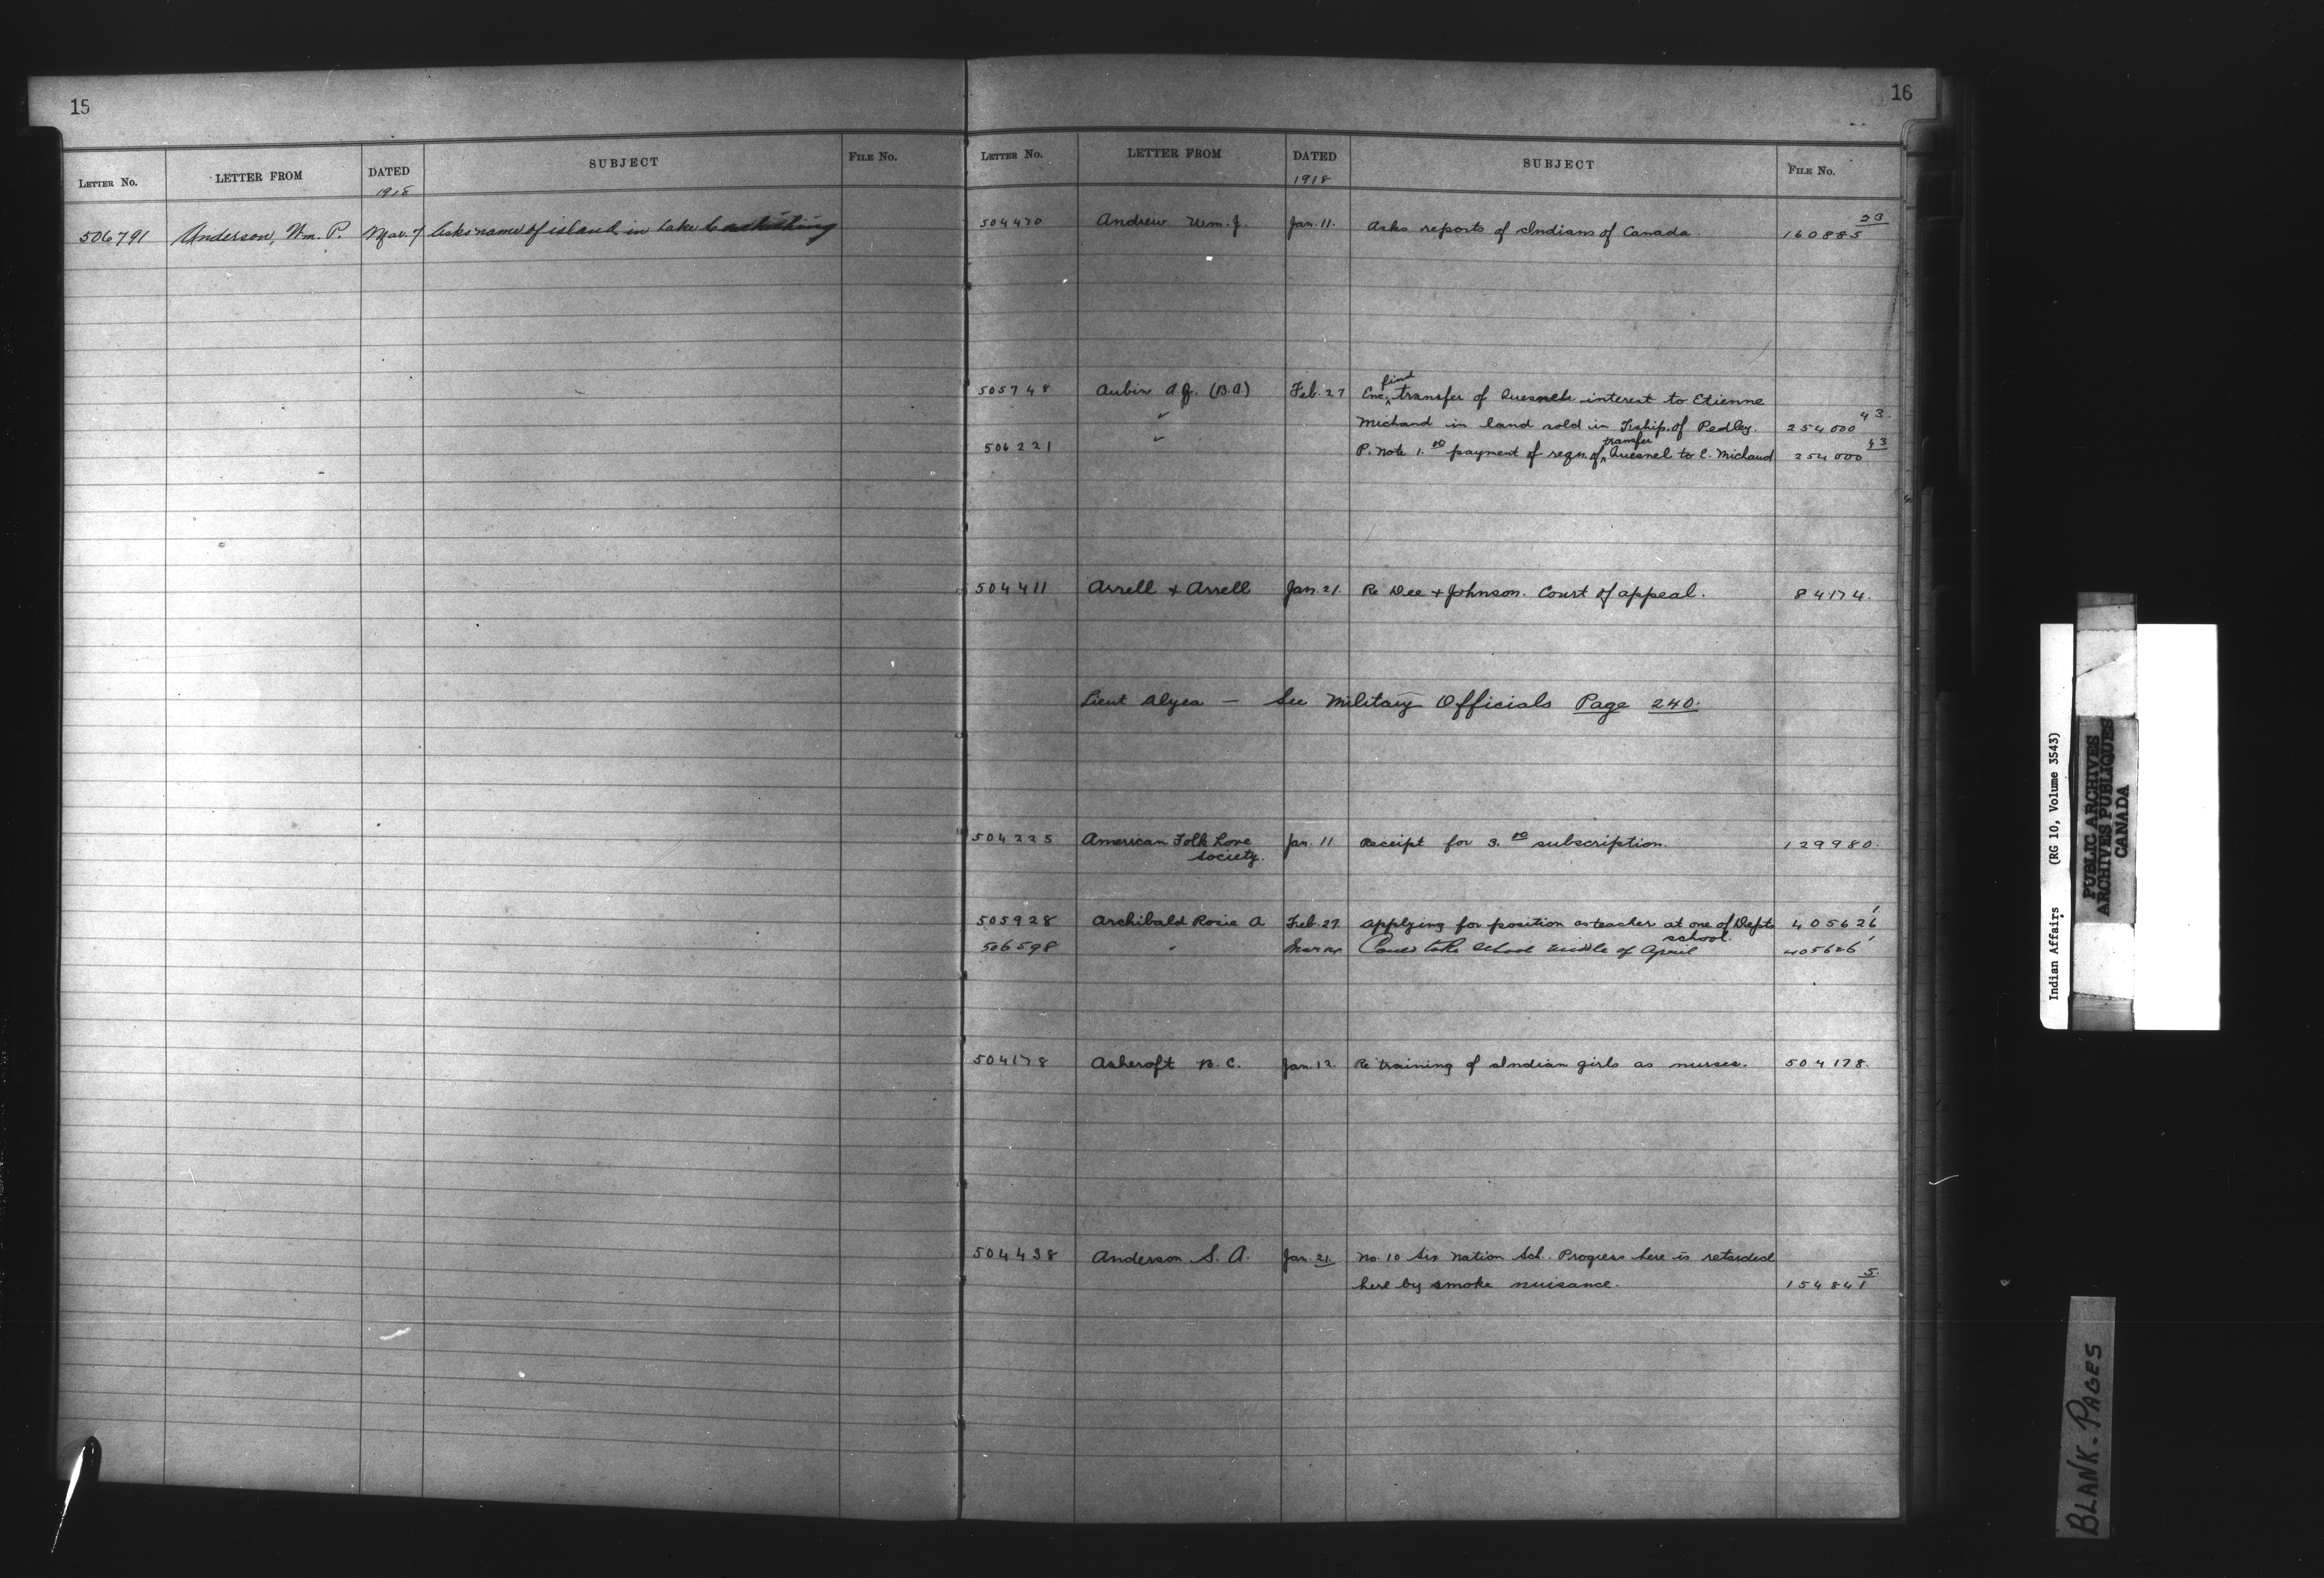 15
LETTER No. LETTER FROM DATED SUBJECT FILE No.
1918
506791 Anderson, Wm. P. Mar. 7 Asks name of island in Lake
16
LETTER No. LETTER FROM DATED SUBJECT FILE No.
1918
504470 Andrew Wm. J. Jan. 11. Asks reports of Indians of Canada. 160885 23
505748 Aubin A.J. (B.A.) Feb. 27 Enc. find transfer of Quesnels interest to Etienne
" Michaud in land sold in Tship. of Pedley. 254000 43.
506221 " P. note 1.00 payment of regn. of transfer Quesnel to E. Michaud 254000 43
504411 Arrell + Arrell Jan. 21. Re Dee + Johnson. Court of appeal. 84174.
Lieut Alyea — See Military Officials Page 240.
504225 American Folk Lore Jan. 11 Receipt for 3.00 subscription. 129980.
Society.
505928 Archibald Rosie A Feb. 27. Applying for position as teacher at one of Depts 405626 1
school.
506598 " Mar school middle of April 405626 1
504178 Ashcroft B.C. Jan. 12. Re training of Indian girls as nurses. 504178.
504438 Anderson S. A. Jan. 21. No. 10 Six Nation Sch. Progress here is retarded
here by smoke nuisance. 154841 5.
Indian Affairs (RG 10, Volume 3543)
PUBLIC ARCHIVES
ARCHIVES PUBLIQUES
CANADA
BLANK-PAGES